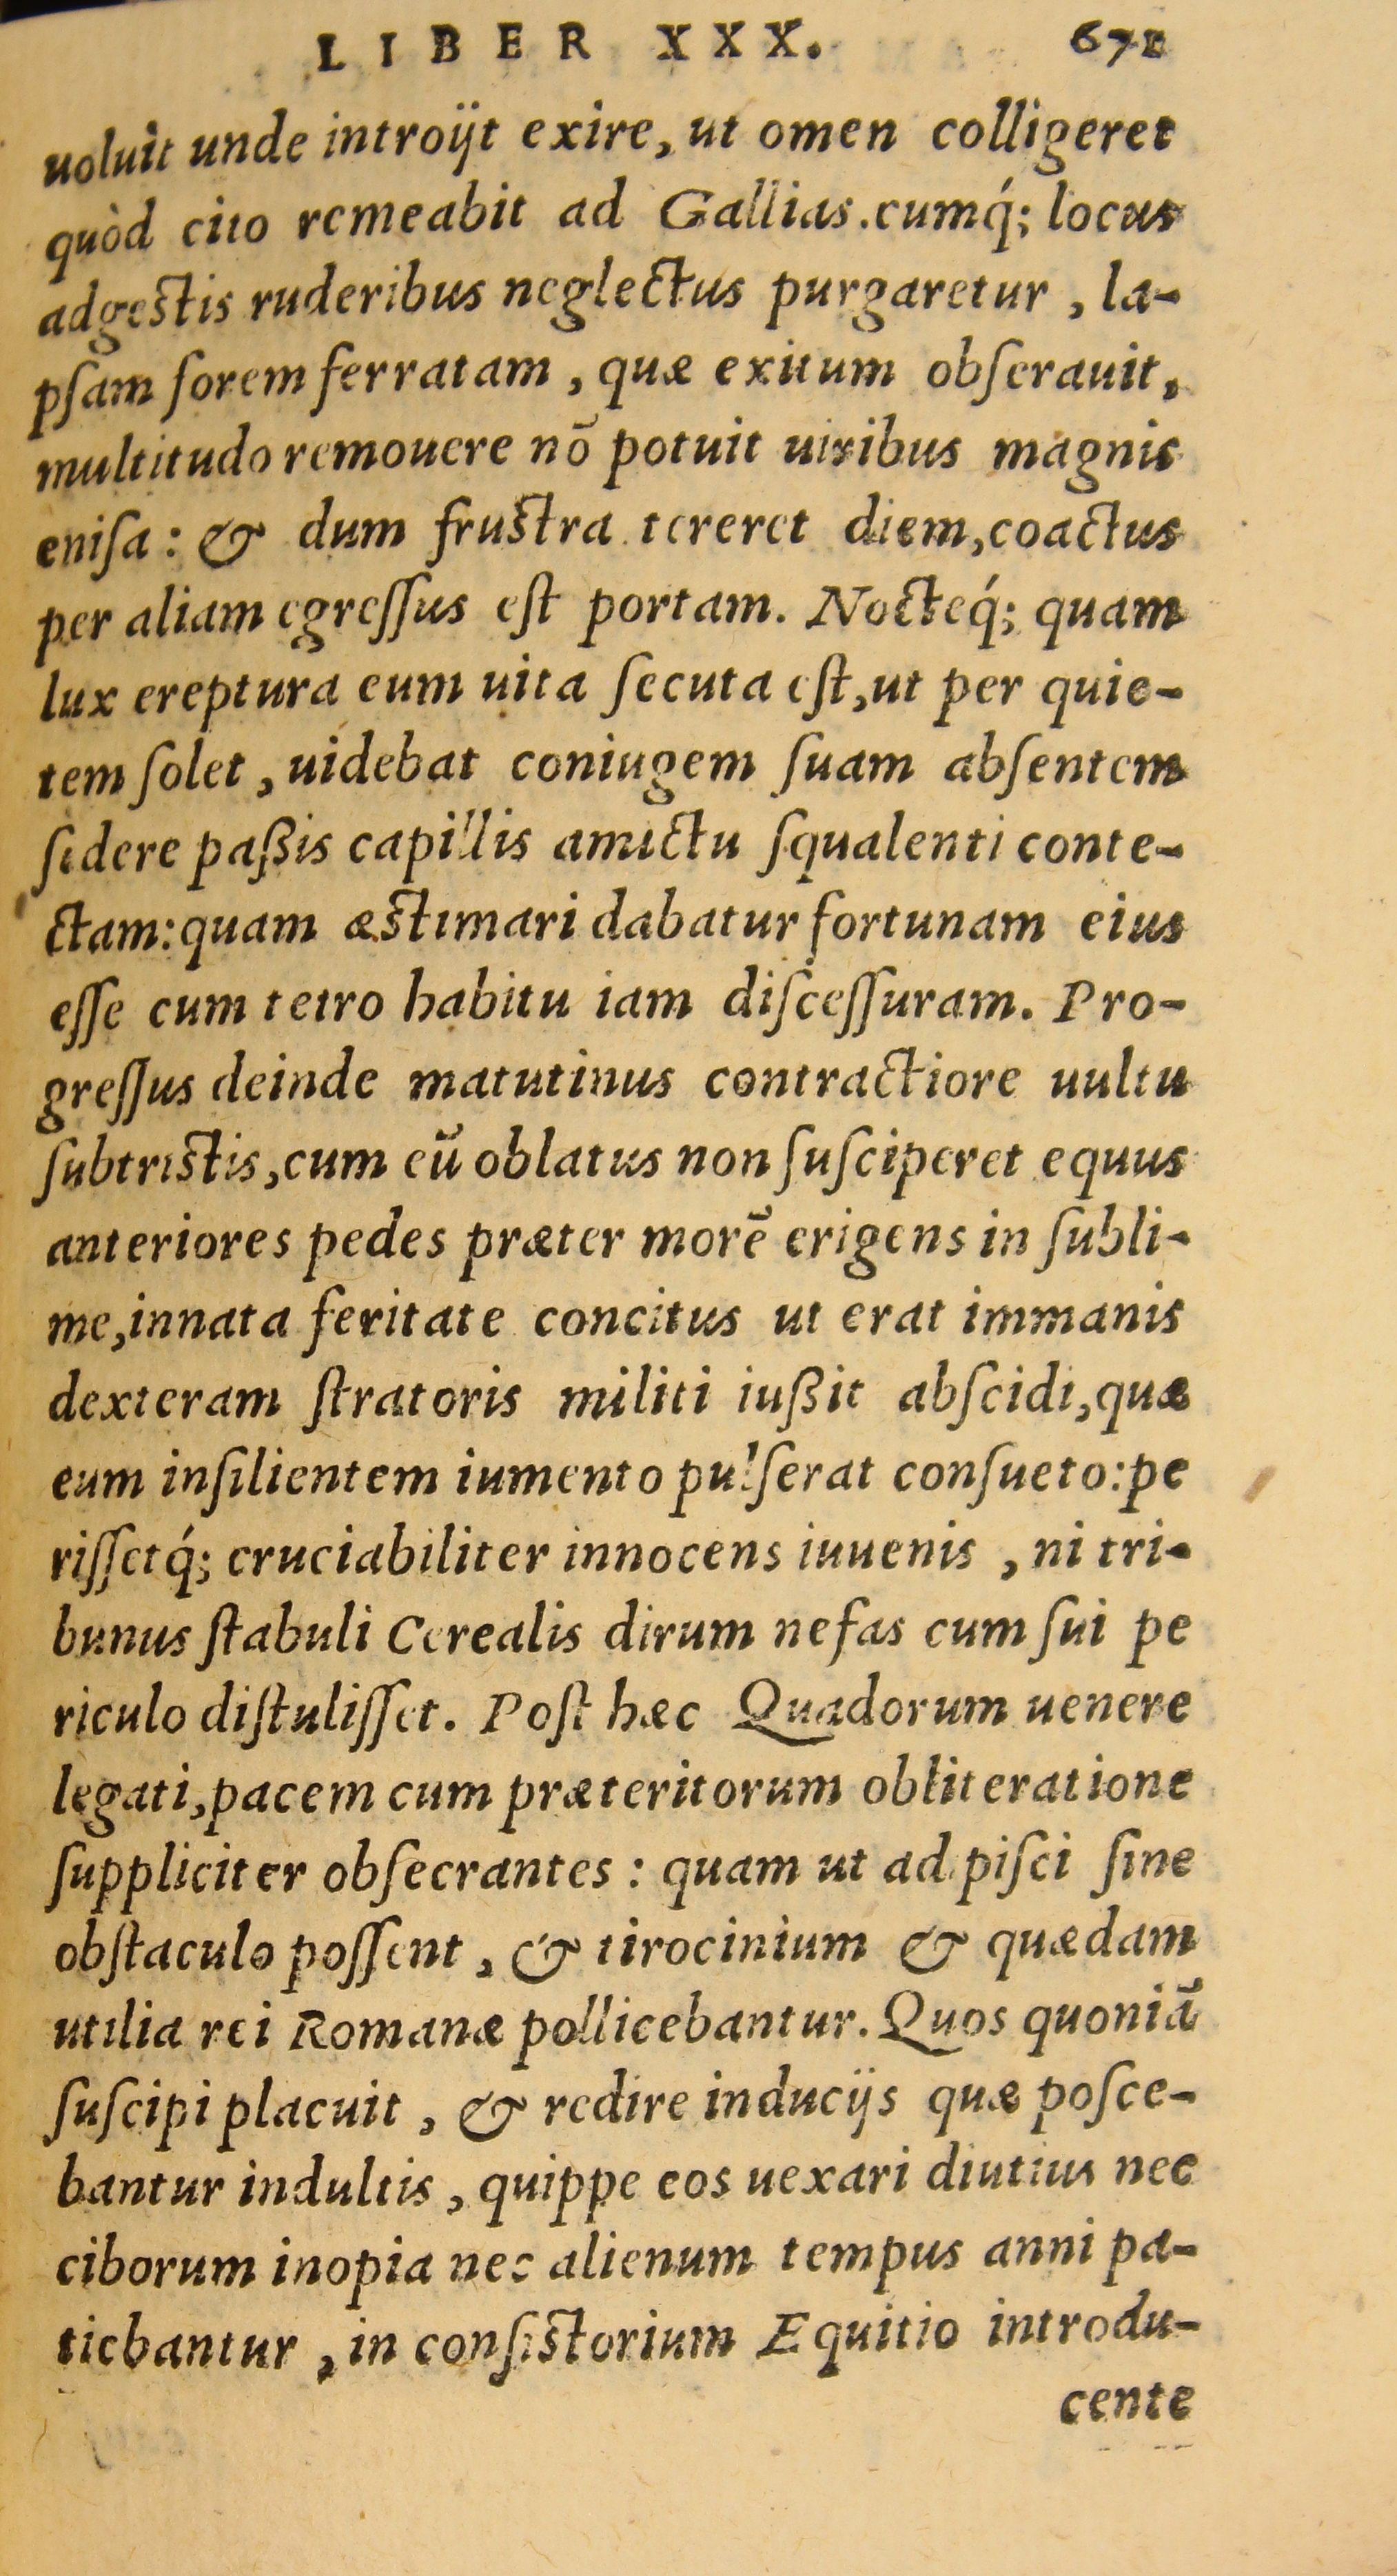 LIBER XXX. 671
uoluit unde introijt exire, ut omen colligeret
quòd cito remeabit ad Gallias. cumq́; locus
adgestis ruderibus neglectus purgaretur, la-
pſam forem ferratam, quæ exitum obſerauit,
multitudo remouere nō potuit uiribus magnis
eniſa: & dum frustra tereret diem, coactus
per aliam egreſſus eſt portam. Nocteq́; quam
lux ereptura eum uita ſecuta eſt, ut per quie-
tem ſolet, uidebat coniugem ſuam abſentem
ſidere paßis capillis amictu ſqualenti conte-
ctam: quam æstimari dabatur fortunam eius
eſſe cum tetro habitu iam diſceſſuram. Pro-
greſſus deinde matutinus contractiore uultu
ſubtristis, cum eū oblatus non ſuſciperet equus
anteriores pedes præter morē erigens in ſubli-
me, innata feritate concitus ut erat immanis
dexteram ſtratoris militi iußit abſcidi, quæ
eum inſilientem iumento pulſerat conſueto: pe
riſſetq́; cruciabiliter innocens iuuenis, ni tri-
bunus ſtabuli Cerealis dirum nefas cum ſui pe
riculo diſtuliſſet. Poſt hæc Quadorum uenere
legati, pacem cum præteritorum obliteratione
ſuppliciter obſecrantes: quam ut adpiſci ſine
obſtaculo poſſent, & tirocinium & quædam
utilia rei Romanæ pollicebantur. Quos quoniā
ſuſcipi placuit, & redire inducijs quæ poſce-
bantur indultis, quippe eos uexari diutius nec
ciborum inopia nec alienum tempus anni pa-
tiebantur, in conſistorium Equitio introdu-
cente